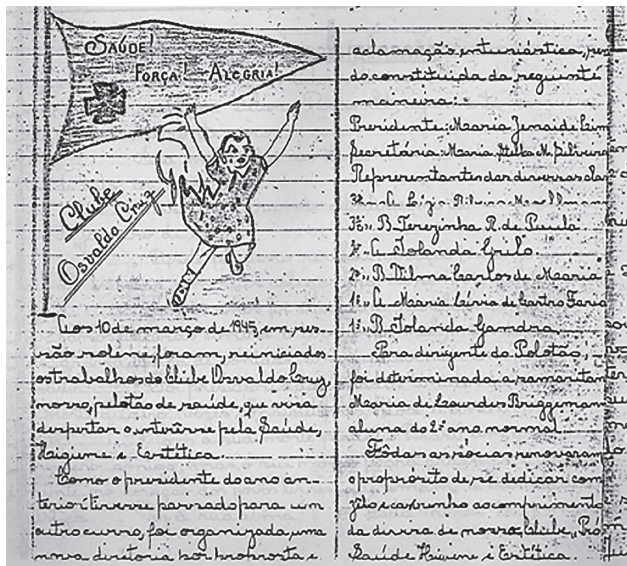 SAÚDE!
FORÇA! ALEGRIA!
Clube
Osvaldo Cruz
Aos 10 de março de 1945, em ses-
são solene, foram, reiniciados
os trabalhos do Clube Osvaldo Cruz,
nosso, pelotão de saúde, que visa
despertar o interêsse pela Saúde,
Higiene e Estética.
Como o presidente do ano an-
terior tivesse passado para um
outro curso, foi organizada, uma
nova diretoria por proposta e
aclamação, entusiástica, sen
do, constituida da seguinte
maneira:
Presidente: Maria Zenaide Lim
Secretária Maria Stella M. Silveira
Representantes das diversas clas
B. Terezinha R. de Paula
C Iolanda Grilo
2º,, B. Dilma Carlos de Maaria
1º,, A Maria Lívia de Castro Faria
1º,, B. Iolanda Gandra
Para dirigente do Pelotão,
foi determinada a, samaritan
Maria de Lourdes Briggeman
aluna do 2º ano normal
Tôdas as sócias renovaram
o propósito de se dedicar com
zêlo e carinho ao comprimento
da divisa de nosso, Clube,, Pró
Saúde Higiene e Estética.